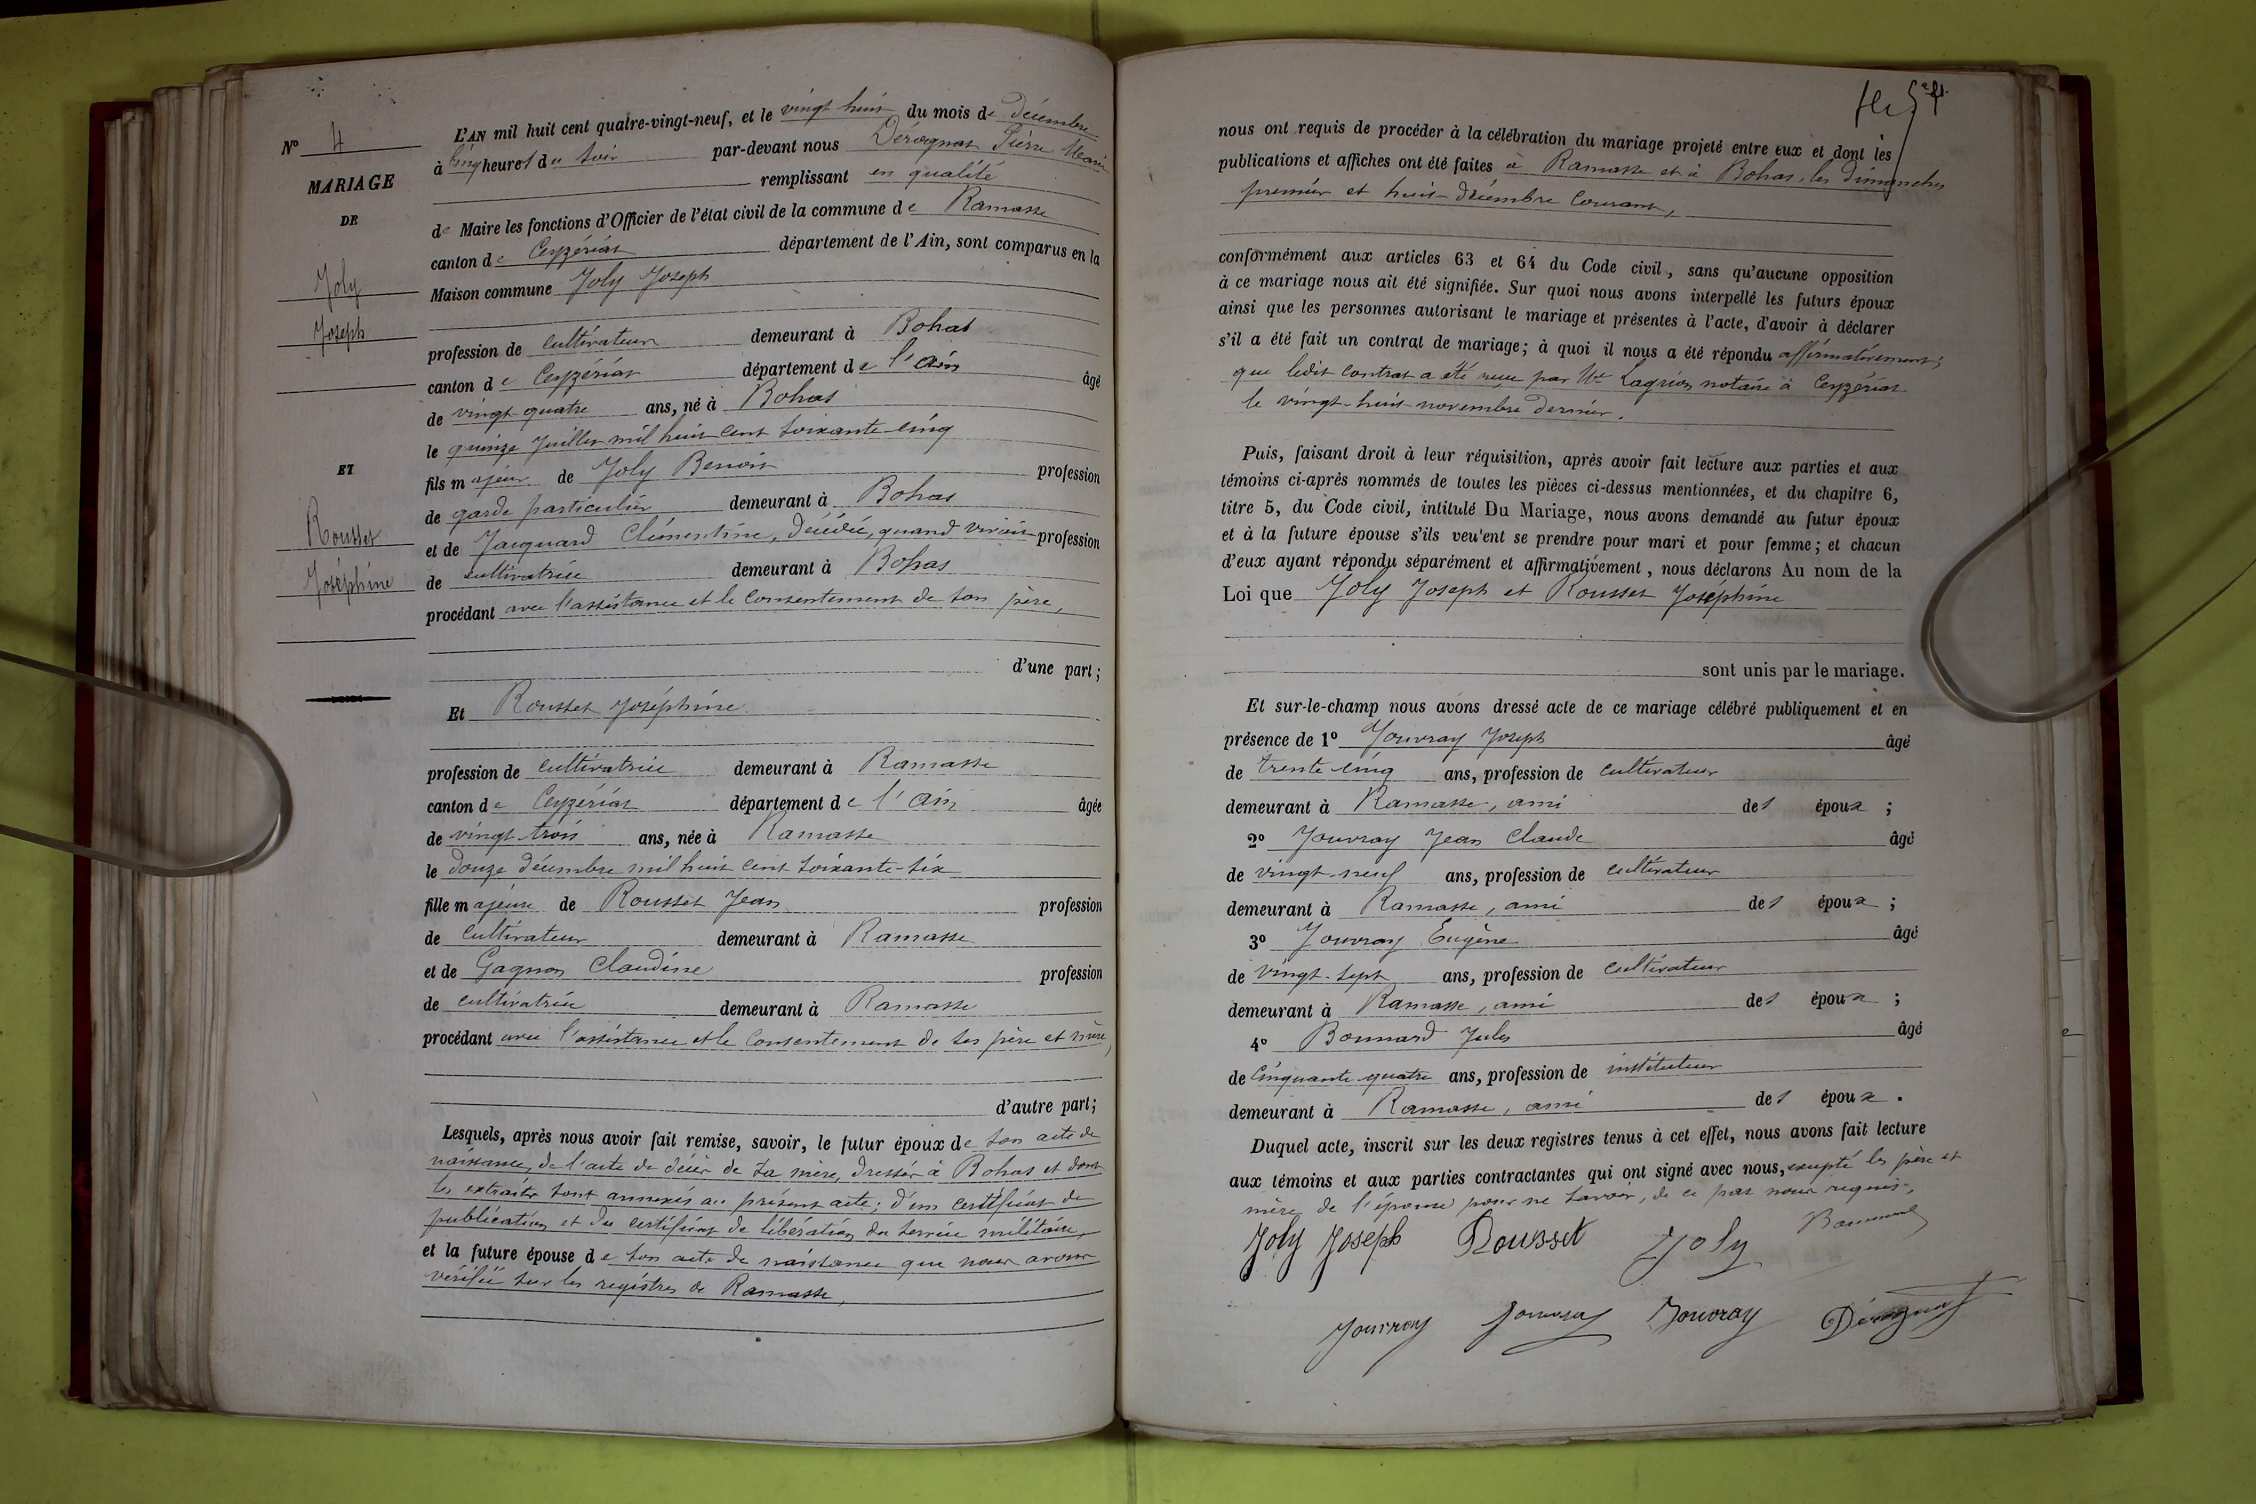 N° 4
MARIAGE
DE
Joly
Joseph
ET
Rousset
Joséphine
L'AN mil huit cent quatre-vingt-neuf, et le vingt huit du mois de Décembre
à cinq heures du soir par-devant nous Dérognat Pierre Marie
remplissant en qualité
de Maire les fonctions d'Officier de l'état civil de la commune de Ramasse
canton de Ceyzériat département de l'Ain, sont comparus en la
Maison commune Joly Joseph
profession de cultivateur demeurant à Bohas
canton de Ceyzériat département de l'Ain âgé
de vingt quatre ans, né à Bohas
le quinze juillet mil huit cent soixante cinq
fils majeur de Joly Benoit profession
de garde particulier demeurant à Bohas
et de Jacquard Clémentine, décédée, quand vivait profession
de cultivatrice demeurant à Bohas
procédant avec l'assistance et le consentement de son père,
d'une part;
Et Rousset Joséphine
profession de cultivatrice demeurant à Ramasse
canton de Ceyzériat département de l'Ain âgée
de vingt trois ans, née à Ramasse
le douze décembre mil huit cent soixante-six
fille majeure de Rousset Jean profession
de cultivateur demeurant à Ramasse
et de Gagnon Claudine profession
de cultivatrice demeurant à Ramasse
procédant avec l'assistance et le consentement de ses père et mère,
d'autre part;
Lesquels, après nous avoir fait remise, savoir, le futur époux de son acte de
naissance, de l'acte de décès de sa mère, dressés à Bohas et dont
les extraits sont annexés au présent acte; d'un certificat de
publication et du certificat de libération du service militaire,
et la future épouse de son acte de naissance que nous avons
vérifié sur les registres de Ramasse,
nous ont requis de procéder à la célébration du mariage projeté entre eux et dont les
publications et affiches ont été faites à Ramasse et à Bohas, les dimanches
premier et huit décembre courant,
conformément aux articles 63 et 64 du Code civil, sans qu'aucune opposition
à ce mariage nous ait été signifiée. Sur quoi nous avons interpellé les futurs époux
ainsi que les personnes autorisant le mariage et présentes à l'acte, d'avoir à déclarer
s'il a été fait un contrat de mariage; à quoi il nous a été répondu affirmativement;
que ledit contrat a été reçu par Me Lagrion notaire à Ceyzériat
le vingt-huit novembre dernier.
Puis, faisant droit à leur réquisition, après avoir fait lecture aux parties et aux
témoins ci-après nommés de toutes les pièces ci-dessus mentionnées, et du chapitre 6,
titre 5, du Code civil, intitulé Du Mariage, nous avons demandé au futur époux
et à la future épouse s'ils veu'ent se prendre pour mari et pour femme; et chacun
d'eux ayant répondu séparément et affirmativement, nous déclarons Au nom de la
Loi que Joly Joseph et Rousset Joséphine
sont unis par le mariage.
Et sur-le-champ nous avons dressé acte de ce mariage célébré publiquement et en
présence de 1° Jouvray Joseph âgé
de trente cinq ans, profession de cultivateur
demeurant à Ramasse, ami des époux ;
2° Jouvray Jean Claude âgé
de vingt-neuf ans, profession de cultivateur
demeurant à Ramasse, ami des époux ;
3° Jouvray Eugène âgé
de vingt-sept ans, profession de cultivateur
demeurant à Ramasse, ami des époux ;
4° Bonnard Jules âgé
de Cinquante quatre ans, profession de instituteur
demeurant à Ramasse, ami des époux .
Duquel acte, inscrit sur les deux registres tenus à cet effet, nous avons fait lecture
aux témoins et aux parties contractantes qui ont signé avec nous, excepté les père et
mère de l'épouse pour ne savoir, de ce par nous requis,
Joly Joseph Rousset Joly Bonnard
Jouvray Jouvray Jouvray Dérognat